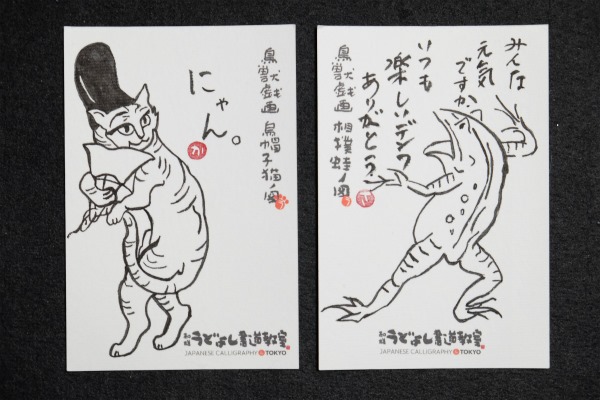 にゃん。
鳥獣戯画 烏帽子猫ノ図
か
和様 うどよし書道教室
JAPANESE CALLIGRAPHY TOKYO
みんな
元気
ですか
いつも
楽しいデンワ
ありがとう
鳥獣戯画 相撲蛙ノ図
うどよし書道教室
JAPANESE CALLIGRAPHY TOKYO